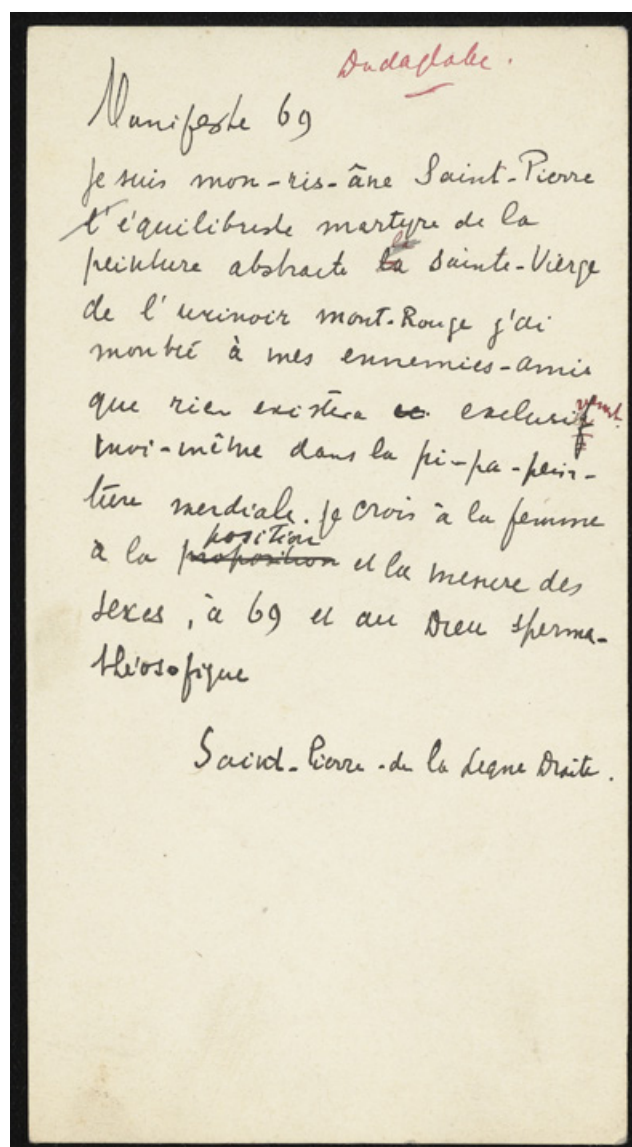 Dadaglobe.
Manifeste 69
je suis mon-ris-âne Saint-Pierre
l'équilibriste martyre de la
peinture abstraite la Sainte-Vierge
de l'urinoir mont-Rouge j'ai
montré à mes ennemies-amis
que rien existera exclusivement
moi-même dans la pi-pa-pein-
ture merdiale. je crois à la femme
à la position et la mesure des
sexes, à 69 et au Dieu sperma-
théosofique
Saint-Pierre-de la Ligne Droite.